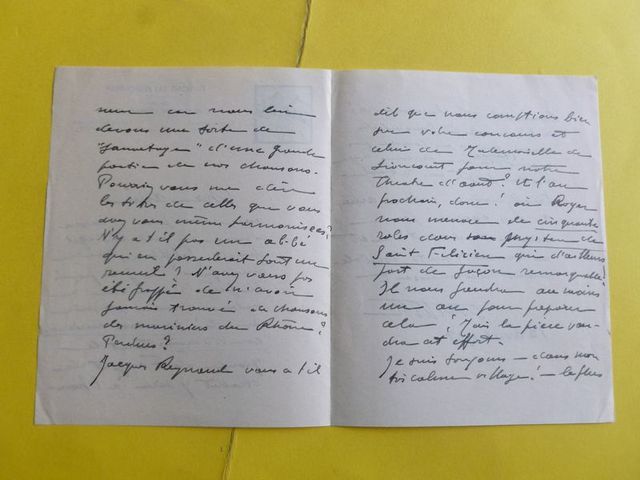 nous lui
devons une sorte de
"sauvetage" d'une grande
partie de nos chansons.
Pouvez vous me citer
les titres de celles que vous
avez vous même harmonisées?
N'y a t il pas un abbé
qui en possederait tout un
recueil? N'avez vous pas
été frappé de n'avoir
jamais trouvé de chansons
des mariniers du Rhône?
Perdues?
Jacques Reynaud vous a t il
dit que nous comptions bien
sur votre concours et
celui de Mademoiselle de
pour notre
theatre d'août? Et l'an
prochain, donc! où Roger
nous menace de cinquante
roles dans mystère de
Saint Felicien qu'il a d'ailleurs
fort de façon remarquable!
Il nous faudra au moins
un an pour préparer
cela! Mais la pièce vau-
dra cet effort.
Je suis toujours — dans mon
si calme village! — le plus